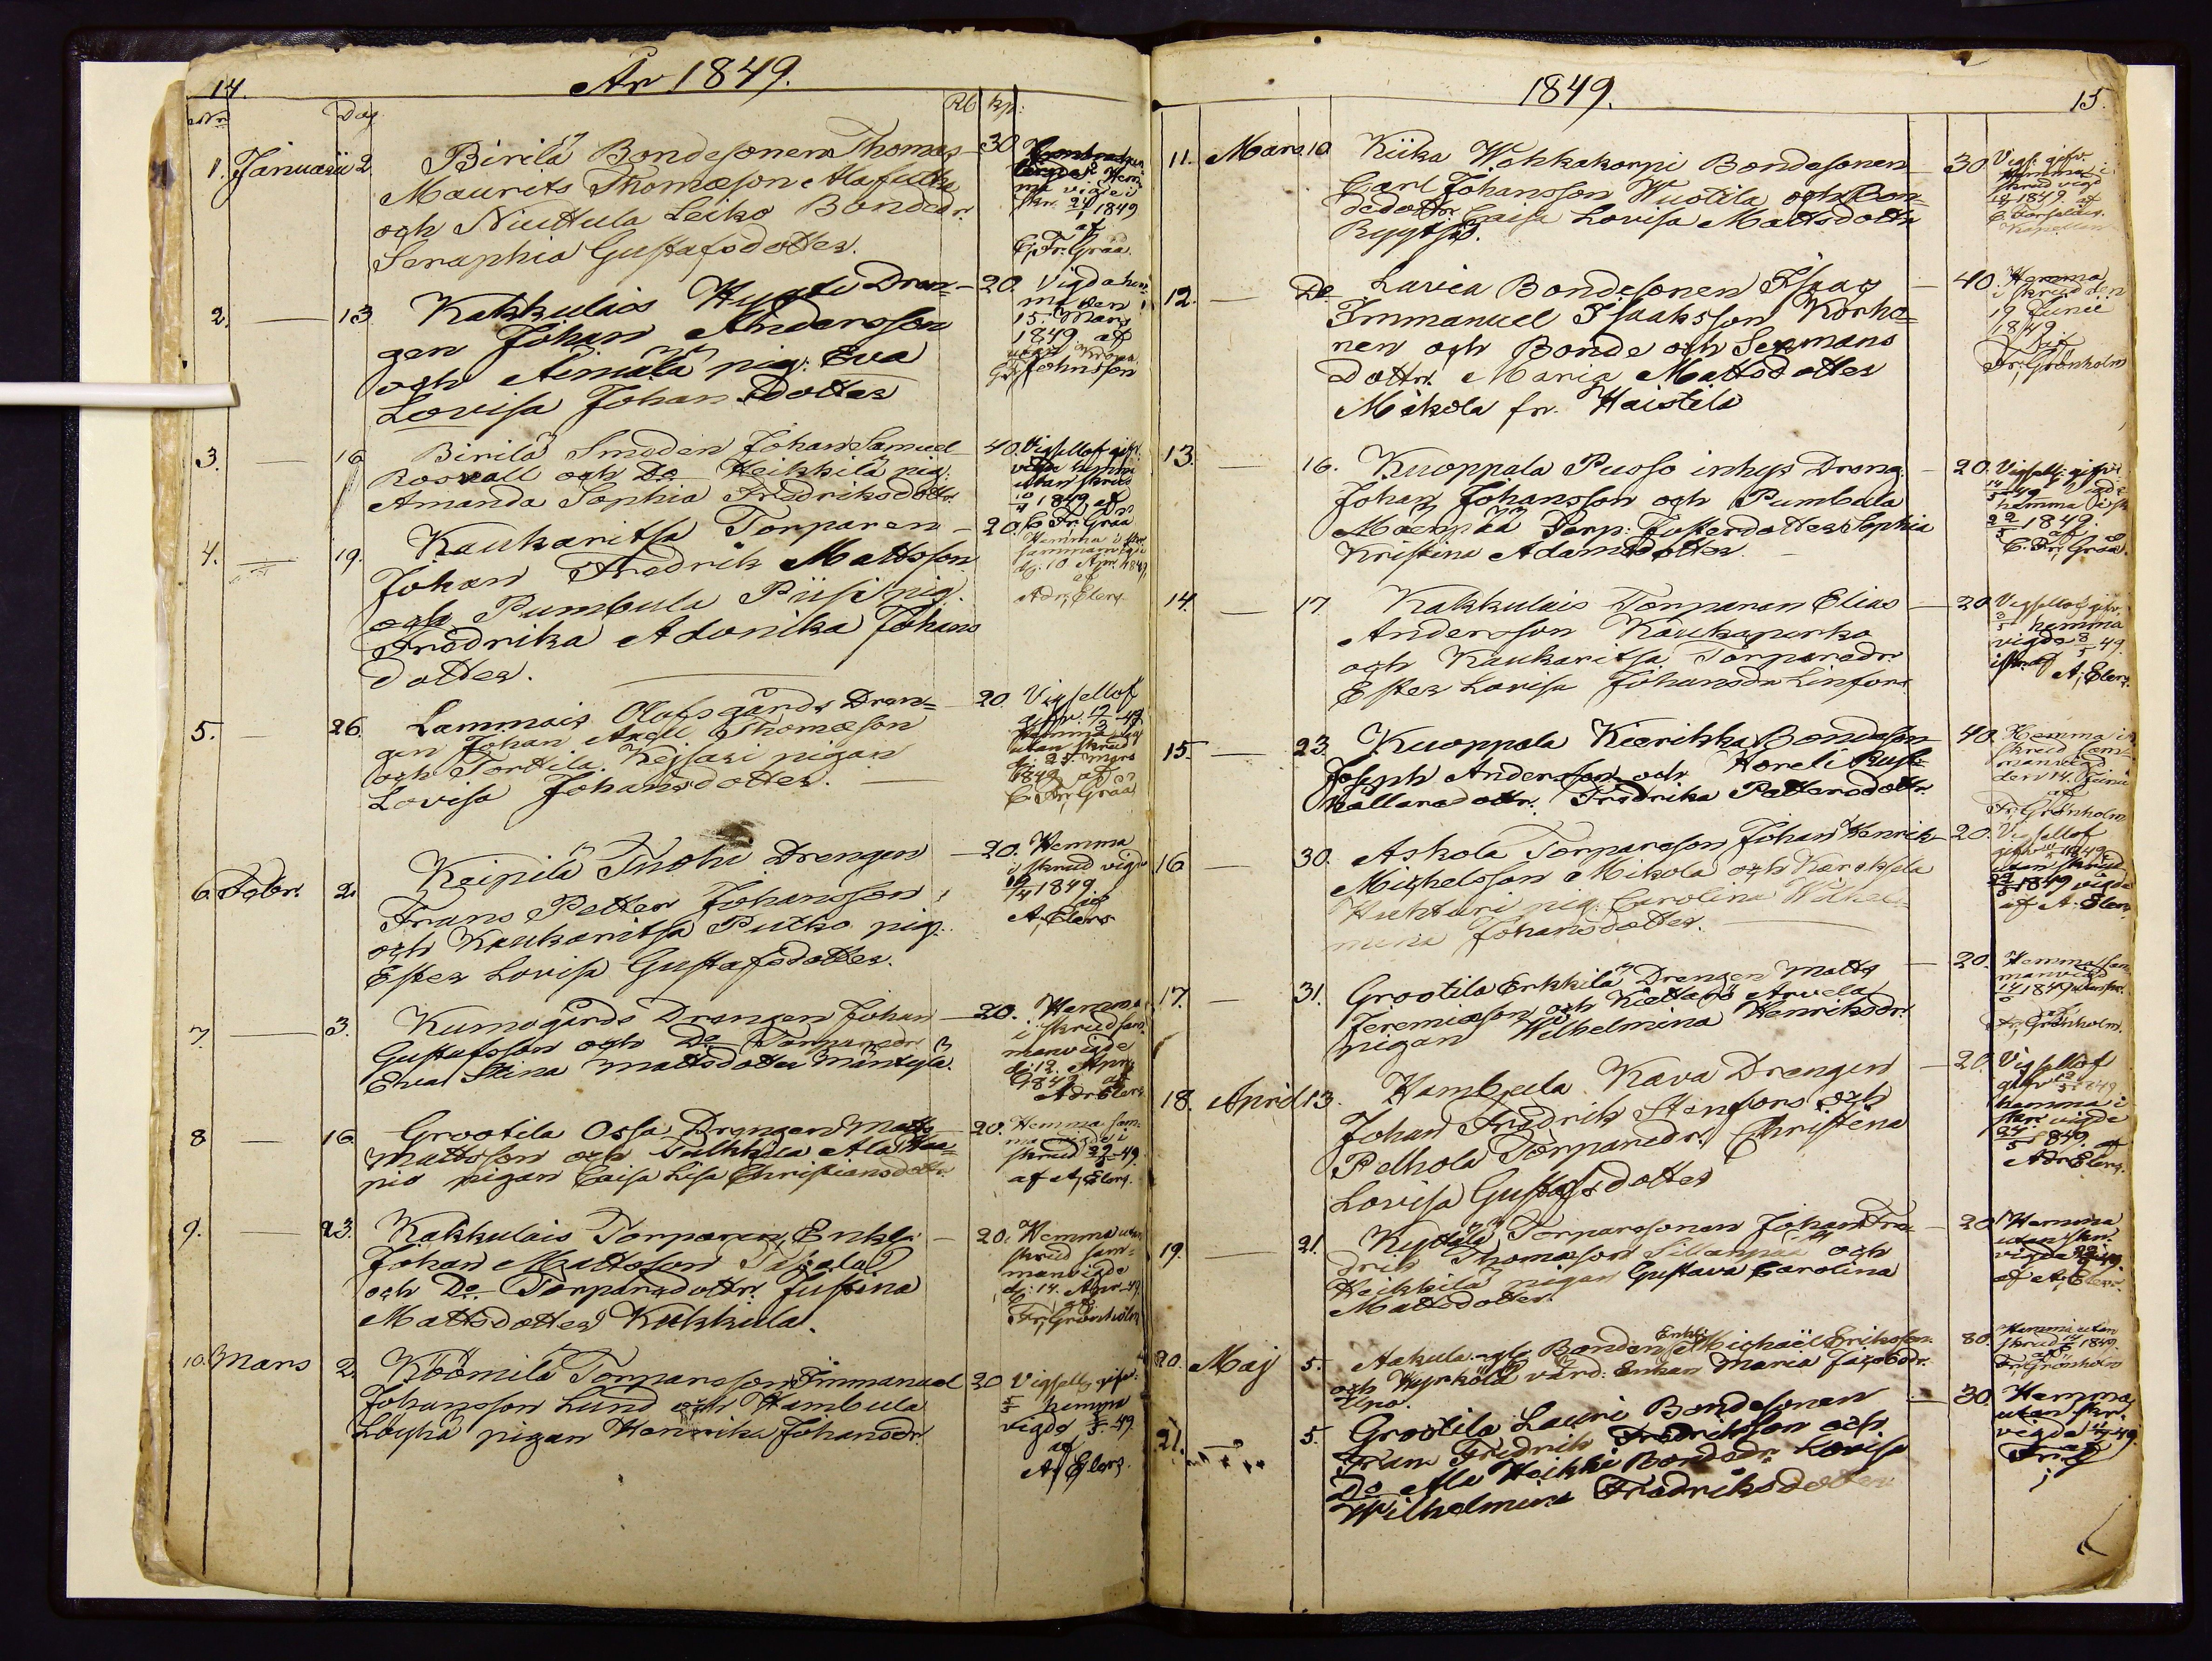 14.
År 1849.
No
Dag
Rb kp:
1. Januarii 2. Birilä Bondesonen Thomas 30
Maurits Thomæson Alafulka
och Niuttula Leiko Bondedr.
Seraphia Gustafsdotter.
Hem-
ma vigde i
skr. 24/1 1849
af
C. Fr. Gråå.
2. — 13. Kakkulais Drän- 20.
gen Johan Andersson
och Äimälä pig. Eva
Lovisa Johansdotter
Vigda hem-
ma den
15. Mars
1849 af
Johnsson
3. — 16 Birilä Smeden Johan Samuel 40.
Rosvall och Do Heikkilä pig.
Amanda Sophia Fredriksdotr.
Vigsellof gifv.
vigde hemma
utan skrud
10/4 1849 af
C. Fr. Gråå
4. — 19. Kaukaritsa Torparen 20.
Johan Fredrik Mattsson
och Pumbula Piisi pig.
Fredrika Adonika Johans
dotter.
Hemma i skr.
sammanvigde
d. 10 Apr. 1849,
af
Adr. Elers
5. — 26. Lammais Olofsgårds Drän- 20.
gen Johan Axell Thomæson
och Torttila Kejsari pigan
Lovisa Johansdotter.
Vigsellof
gifv. 12/3 -49
hemma
utan skrud
d. 25. Mars
1849 af
C. Fr. Gråå
6. Febr. 2. Keipilä Tuohi Drengen 20.
Frans Petter Johansson
och Kaukaritsa Putko pig.
Ester Lovisa Gustafsdotter.
Hemma
i skrud vigde
10/4 1849.
af
A. Elers
7. — 3. Kumogårds Drengen Johan 20.
Gustafsson och Do Torparedr.
Eva Stina Mattsdotter Mäntylä.
Hemma
i skrud sam-
manvigde
d. 12. Apr.
1849 af
Adr. Elers
8 — 16 Grootila Ossa Drengen Matts 20.
Mattsson och Sulkkila Ala Haa-
pio pigan Caisa Lisa Christiansdotr.
Hemma sam-
manvigde i
skrud -49.
af A. Elers.
9. — 23. Kakkulais Torparen, Enkl. 20.
Johan Mattsson
och Do Torparedottr. Justina
Mattsdotter Kukkula.
Hemma utan
skrud sam-
manvigde
d. 14. Apr. -49
af
Fr. Grönholm
10. Mars 2. Köömilä Torparesson Immanuel 20
Johansson Lund och Hambula
Löyhä pigan Henrika Johansdr.
Vigsell. gifv.
hemma
vigde -49
af
A. Elers.
1849.
15.
11. Mars 10 Kiika Wohkakorpi Bondesonen 30
Carl Johansson Wuotila och Bon-
dedottr. Caisa Lovisa Mattsdottr
Vigs. gifv.
Hemma i
skrud vigd
1849. af
C. Forselius.
Kapellan
12. — Do Lavia Bondesonen Isaac 40.
Immanuel Isaaksson Korho-
nen och Bonde och Sexmans
Dottr. Maria Mattsdotter
Mikola fr. Haistila
Hemma
i skrud den
19 Junii
1849
af
Fr. Grönholm
13. — 16. Kuoppala Puoso inhys Dräng 20.
Johan Johansson och Pumbula
Mäenpää Torp. Fosterdotter Sophia
Kristina Adamsdotter.
Vigsell. gifv.
14/5 49 Vigde
hemma i sk
22/5 1849.
af
C. Fr. Gråå.
14. — 17 Kakkulais Torparen Elias 20
Andersson Kaukaperko
och Kaukaritsa Torparedr.
Ester Lovisa Johansdr. Linfors
Vigsellof gifv.
hemma
vigde 8/5 49.
i skr. af
A. Elers.
15. — 23 Kuoppala Kierikka Bondeson 40.
Joseph Andersson och Horeli Rust-
hållaredottr. Fredrika Pettersdottr.
Hemma i
skrud sam-
manvigd
den 14. Junii
af
Fr. Grönholm
16 — 30. Askola Torpareson Johan Henrik 20.
Michelsson Mikola och Kareksela
Huhtari pig. Carolina Wilhel-
mina Johansdotter.
Vigsellof
gifv. 1849
utan skrud
22/5 1849 vigde
af A. Elers
17. — 31. Grootila Erkkilä Drengen Matts 20.
Jeremiæson och Kiettare Arvela
pigan Wilhelmina Henriksdr.
Hemma sam-
manvigd
1849 utan skr.
af
Fr. Grönholm.
18. April 13. Hambula Kava Drengen 20.
Johan Fredrik Stenfors och
Pelhola Torparedr. Christina
Lovisa Gustafsdotter
Vigsellof
gifv. 1849
hemma i
skr. vigde
24/5 1849. af
Adr. Elers.
19. — 21. Kyttälä Torparesonen Johan Fre- 20
drik Thomasson Sillanpää och
Heikkilä pigan Gustava Carolina
Mattsdotter.
Hemma
utan skr.
vigda 49.
af A. Elers.
20. Maj 5. Aakula Bonden Enkl. Michaël Eriksson 80.
och Hyrkölä värd. Enkan Maria Jacobsdr.
Upo.
Hemma utan
skrud 1849.
af
Fr. Grönholm
21. 5. Grootila Lauri Bondesonen 30
Frans Fredrik Fredriksson och
Do Ala Heikki Bondedr. Lovisa
Wilhelmina Fredriksdotter
Hemma
utan skr.
vigda -49.